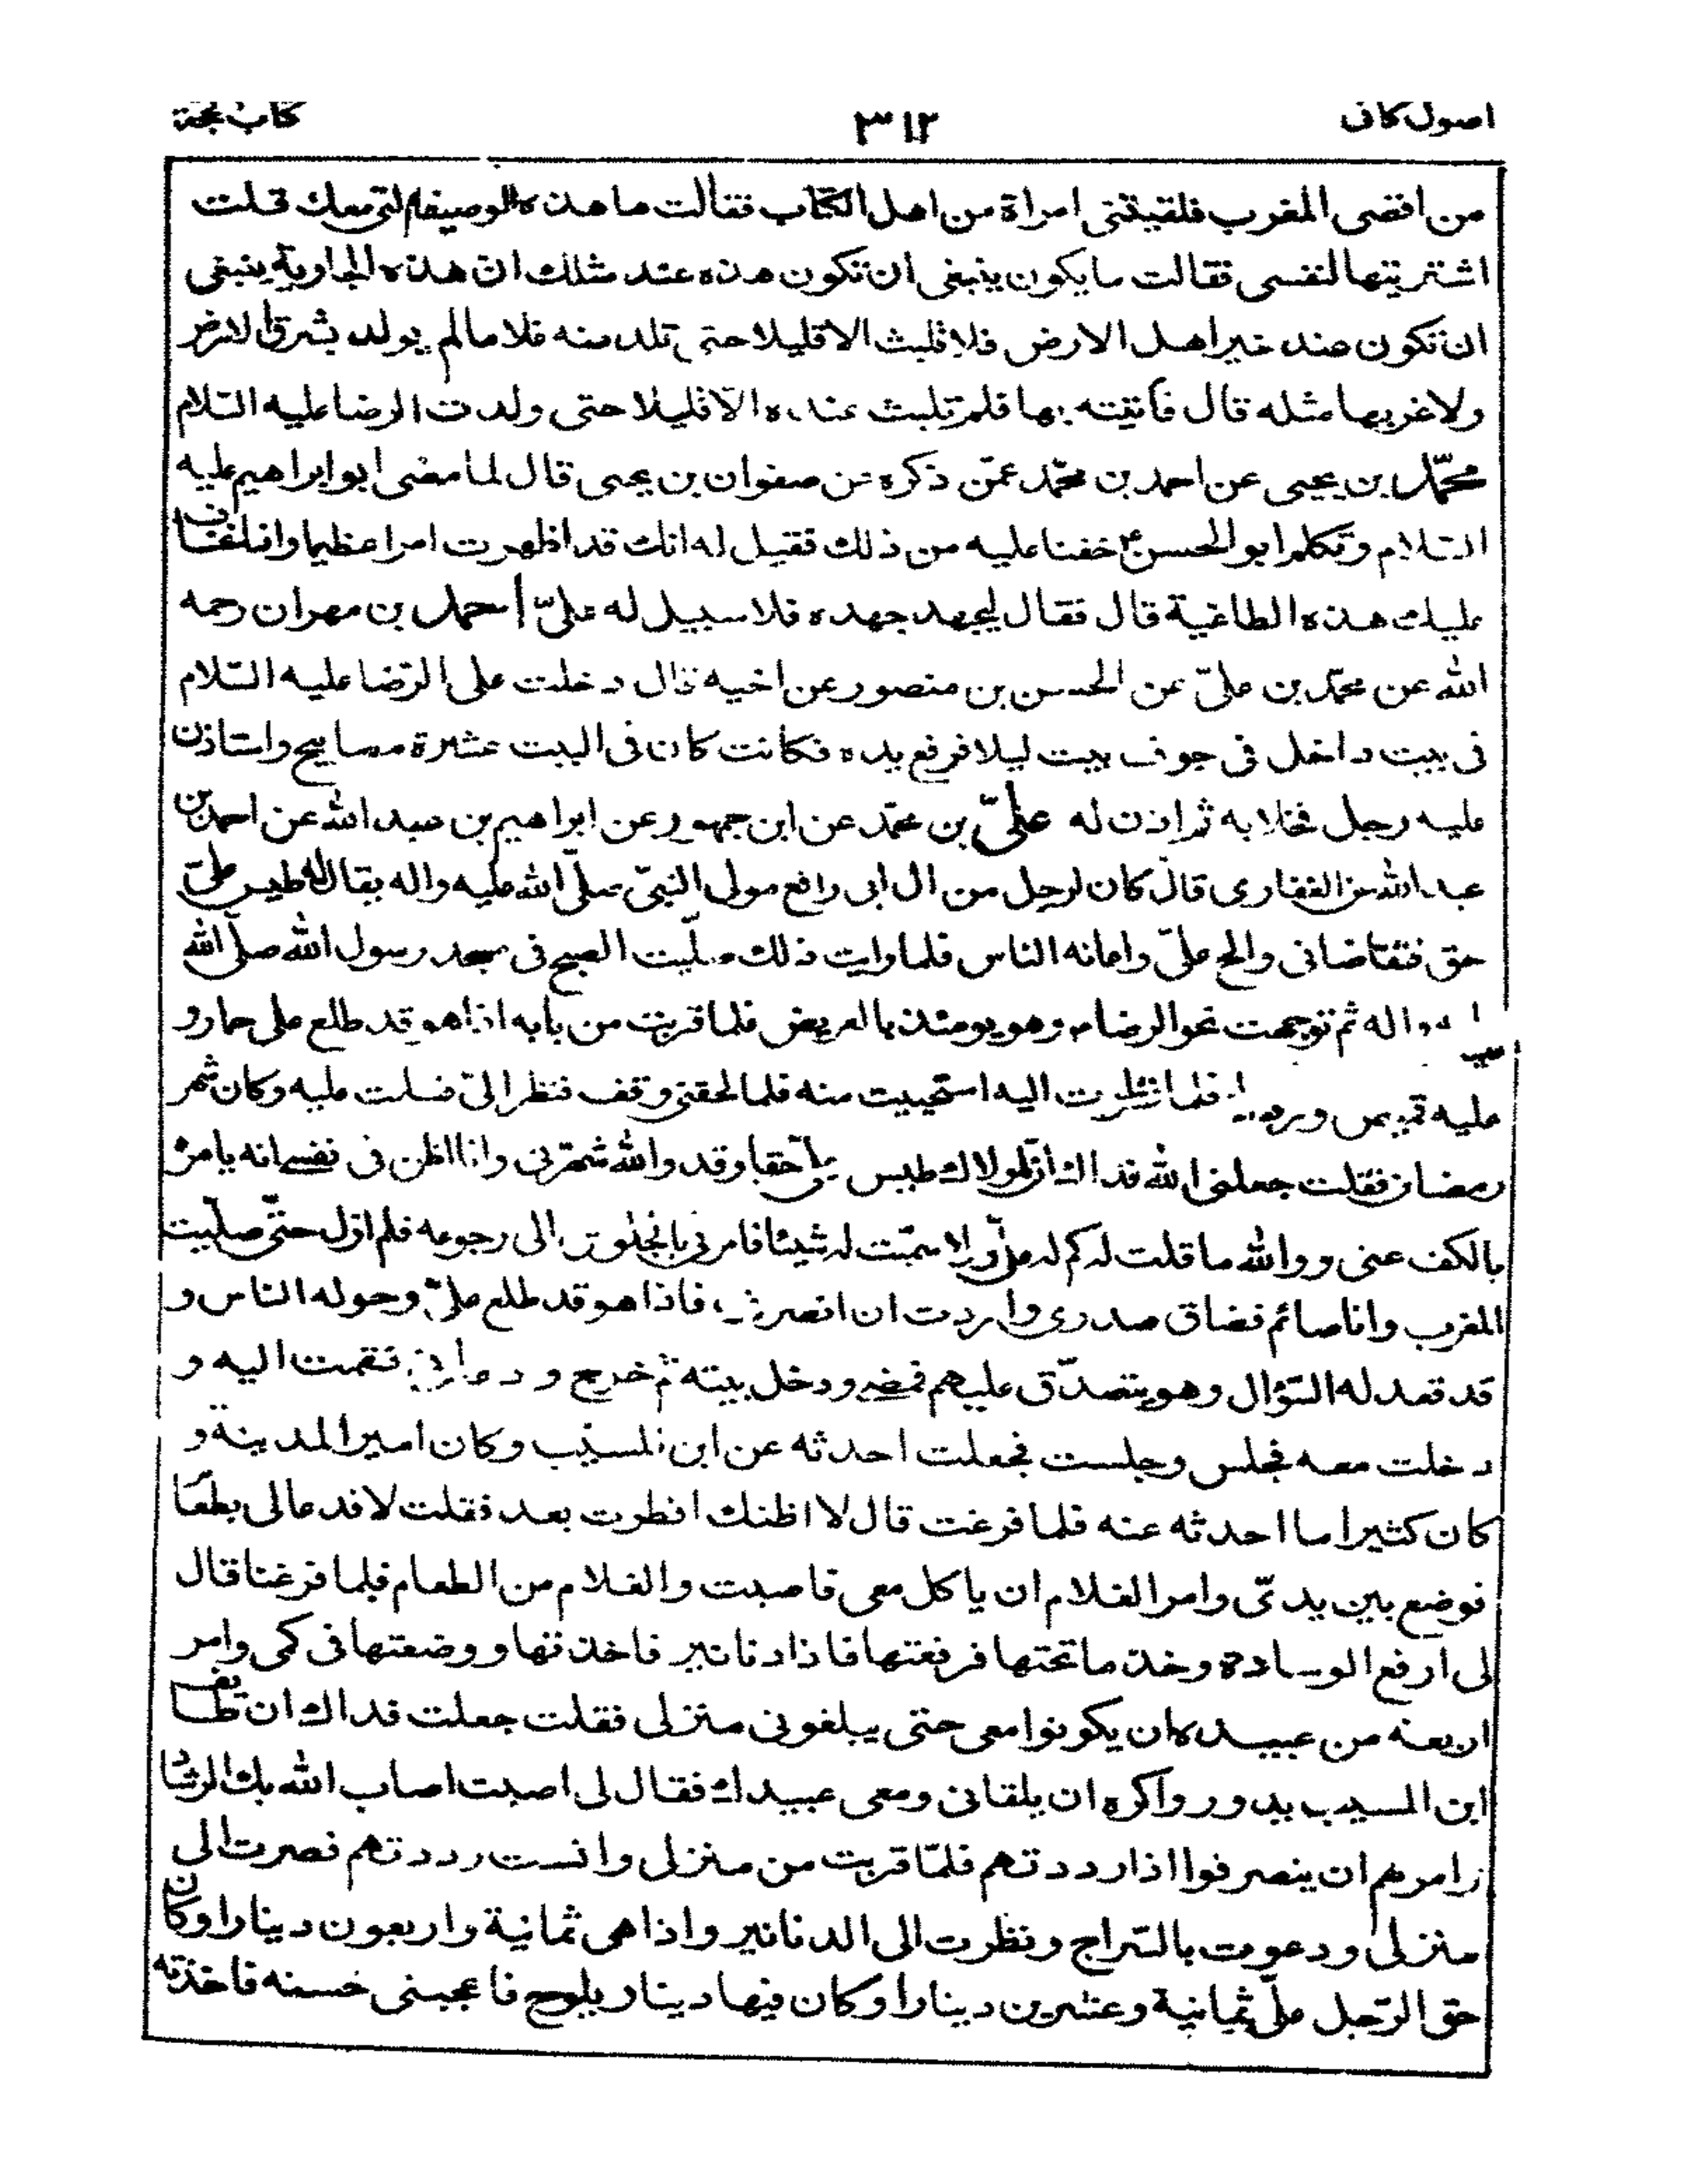 اصول کافی
۳۱۲
کتاب الحجة
من اقصى المغرب فلقيتنى امراة من اهل الكتاب فقالت ما هذه الوصيفة التى معك قلت
اشتريتها لنفسى فقالت ما يكون ينبغى ان تكون هذه عند مثلك ان هذه الجارية ينبغى
ان تكون عند خير اهل الارض فلا تلبث الا قليلا حتى تلد منه غلاما لم يولد بشرق الارض
ولا غربها مثله قال فأتيته بها فلم تلبث عنده الا قليلا حتى ولدت الرضا عليه السّلام
محمّد بن يحيى عن احمد بن محمّد عمّن ذكره عن صفوان بن يحيى قال لما مضى ابو ابراهيم عليه
السّلام وتكلم ابو الحسن ع خفنا عليه من ذلك فقيل له انك قد اظهرت امرا عظيما وانا نخاف
عليك هذه الطاغية قال فقال ليجهد جهده فلا سبيل له علىّ احمد بن مهران رحمه
الله عن محمّد بن علىّ عن الحسن بن منصور عن اخيه قال دخلت على الرّضا عليه السّلام
فى بيت داخل فى جوف بيت ليلا فرفع يده فكانت كان فى البيت عشرة مصابيح واستاذن
عليه رجل فخلا به ثم اذن له علىّ بن محمّد عن ابن جمهور عن ابراهيم بن عبد الله عن احمد بن
عبد الله عن الغفارى قال كان لرجل من ال ابى رافع مولى النبىّ صلّى الله عليه واله يقال له طيس علىّ
حق فتقاضانى والح علىّ واعانه الناس فلما رايت ذلك صلّيت الصبح فى مسجد رسول الله صلّى الله
عليه واله ثم توجهت نحو الرضا ع وهو يومئذ بالعريض فلما قربت من بابه اذا هو قد طلع على حمار و
عليه قميص ورداء فلما نظرت اليه استحييت منه فلما لحقنى وقف فنظر الىّ فسلمت عليه وكان شهر
رمضان فقلت جعلنى الله فداك ان لمولاك طيس علىّ حقا وقد والله شهّرنى وانا اظن فى نفسى انه يامره
بالكف عنى ووالله ما قلت له كم له علىّ ولا سمّيت له شيئا فامرنى بالجلوس الى رجوعه فلم ازل حتّى صلّيت
المغرب وانا صائم فضاق صدرى واردت ان انصرف فاذا هو قد طلع علىّ وحوله الناس و
قد قعد له السّؤال وهو يتصدّق عليهم فمضى ودخل بيته ثم خرج ودعانى فقمت اليه و
دخلت معه فجلس وجلست فجعلت احدثه عن ابن المسيّب وكان امير المدينة و
كان كثيرا ما احدثه عنه فلما فرغت قال لا اظنك افطرت بعد فقلت لا فدعا لى بطعام
فوضع بين يدىّ وامر الغلام ان ياكل معى فاصبت والغلام من الطعام فلما فرغنا قال
لى ارفع الوسادة وخذ ما تحتها فرفعتها فاذا دنانير فاخذتها ووضعتها فى كمى وامر
اربعة من عبيده ان يكونوا معى حتى يبلغونى منزلى فقلت جعلت فداك ان طائف
ابن المسيب يدور واكره ان يلقانى ومعى عبيدك فقال لى اصبت اصاب الله بك الرشاد
وامرهم ان ينصرفوا اذا رددتهم فلمّا قربت من منزلى وانست رددتهم فصرت الى
منزلى ودعوت بالسّراج ونظرت الى الدنانير واذا هى ثمانية واربعون دينارا وكان
حق الرّجل علىّ ثمانية وعشرين دينارا وكان فيها دينار يلوح فاعجبنى حسنه فاخذته